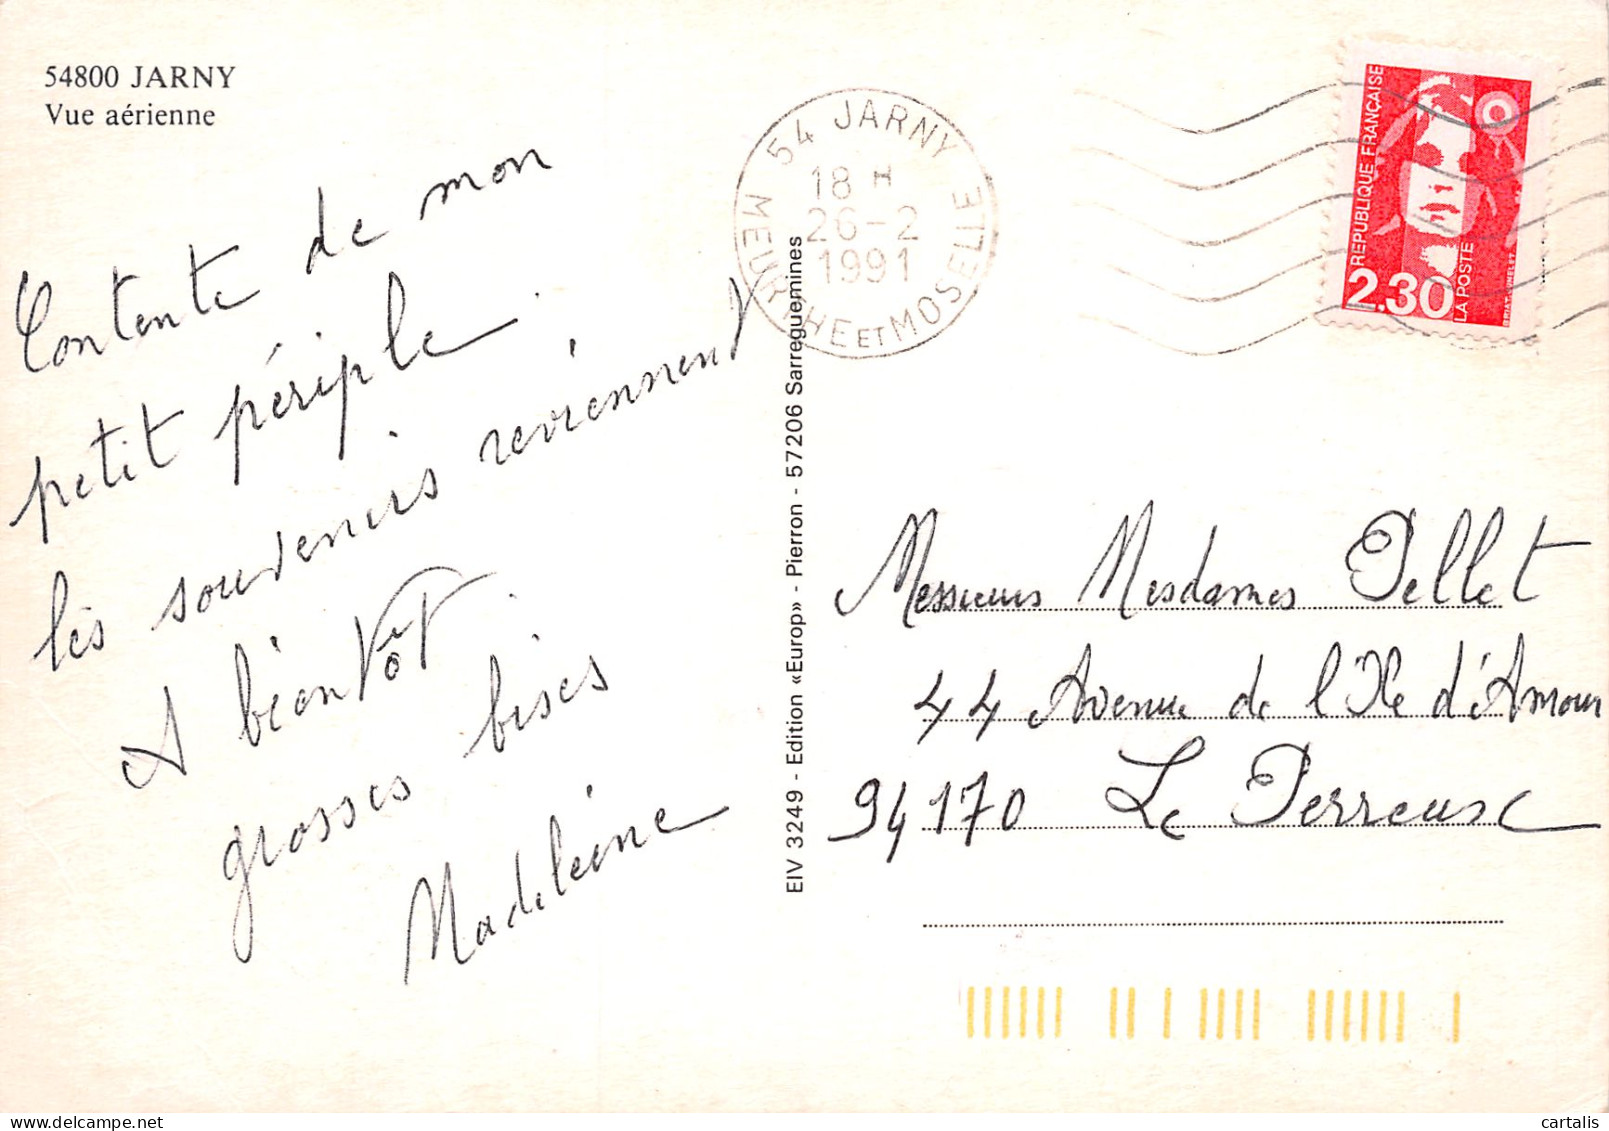 54800 JARNY
Vue aérienne
Contente de mon
petit périple.
les souvenirs reviennent
A bientôt.
grosses bises
Madeleine
54 JARNY
18 H
26-2
1991
MEURTHE ET MOSELLE
REPUBLIQUE FRANÇAISE
2.30
LA POSTE
EIV 3249 - Edition «Europ» - Pierron - 57206 Sarreguemines
Messieurs Mesdames Pellet
44 Avenue de l'Ile d'Amour
94170 Le Perreux
cartalis